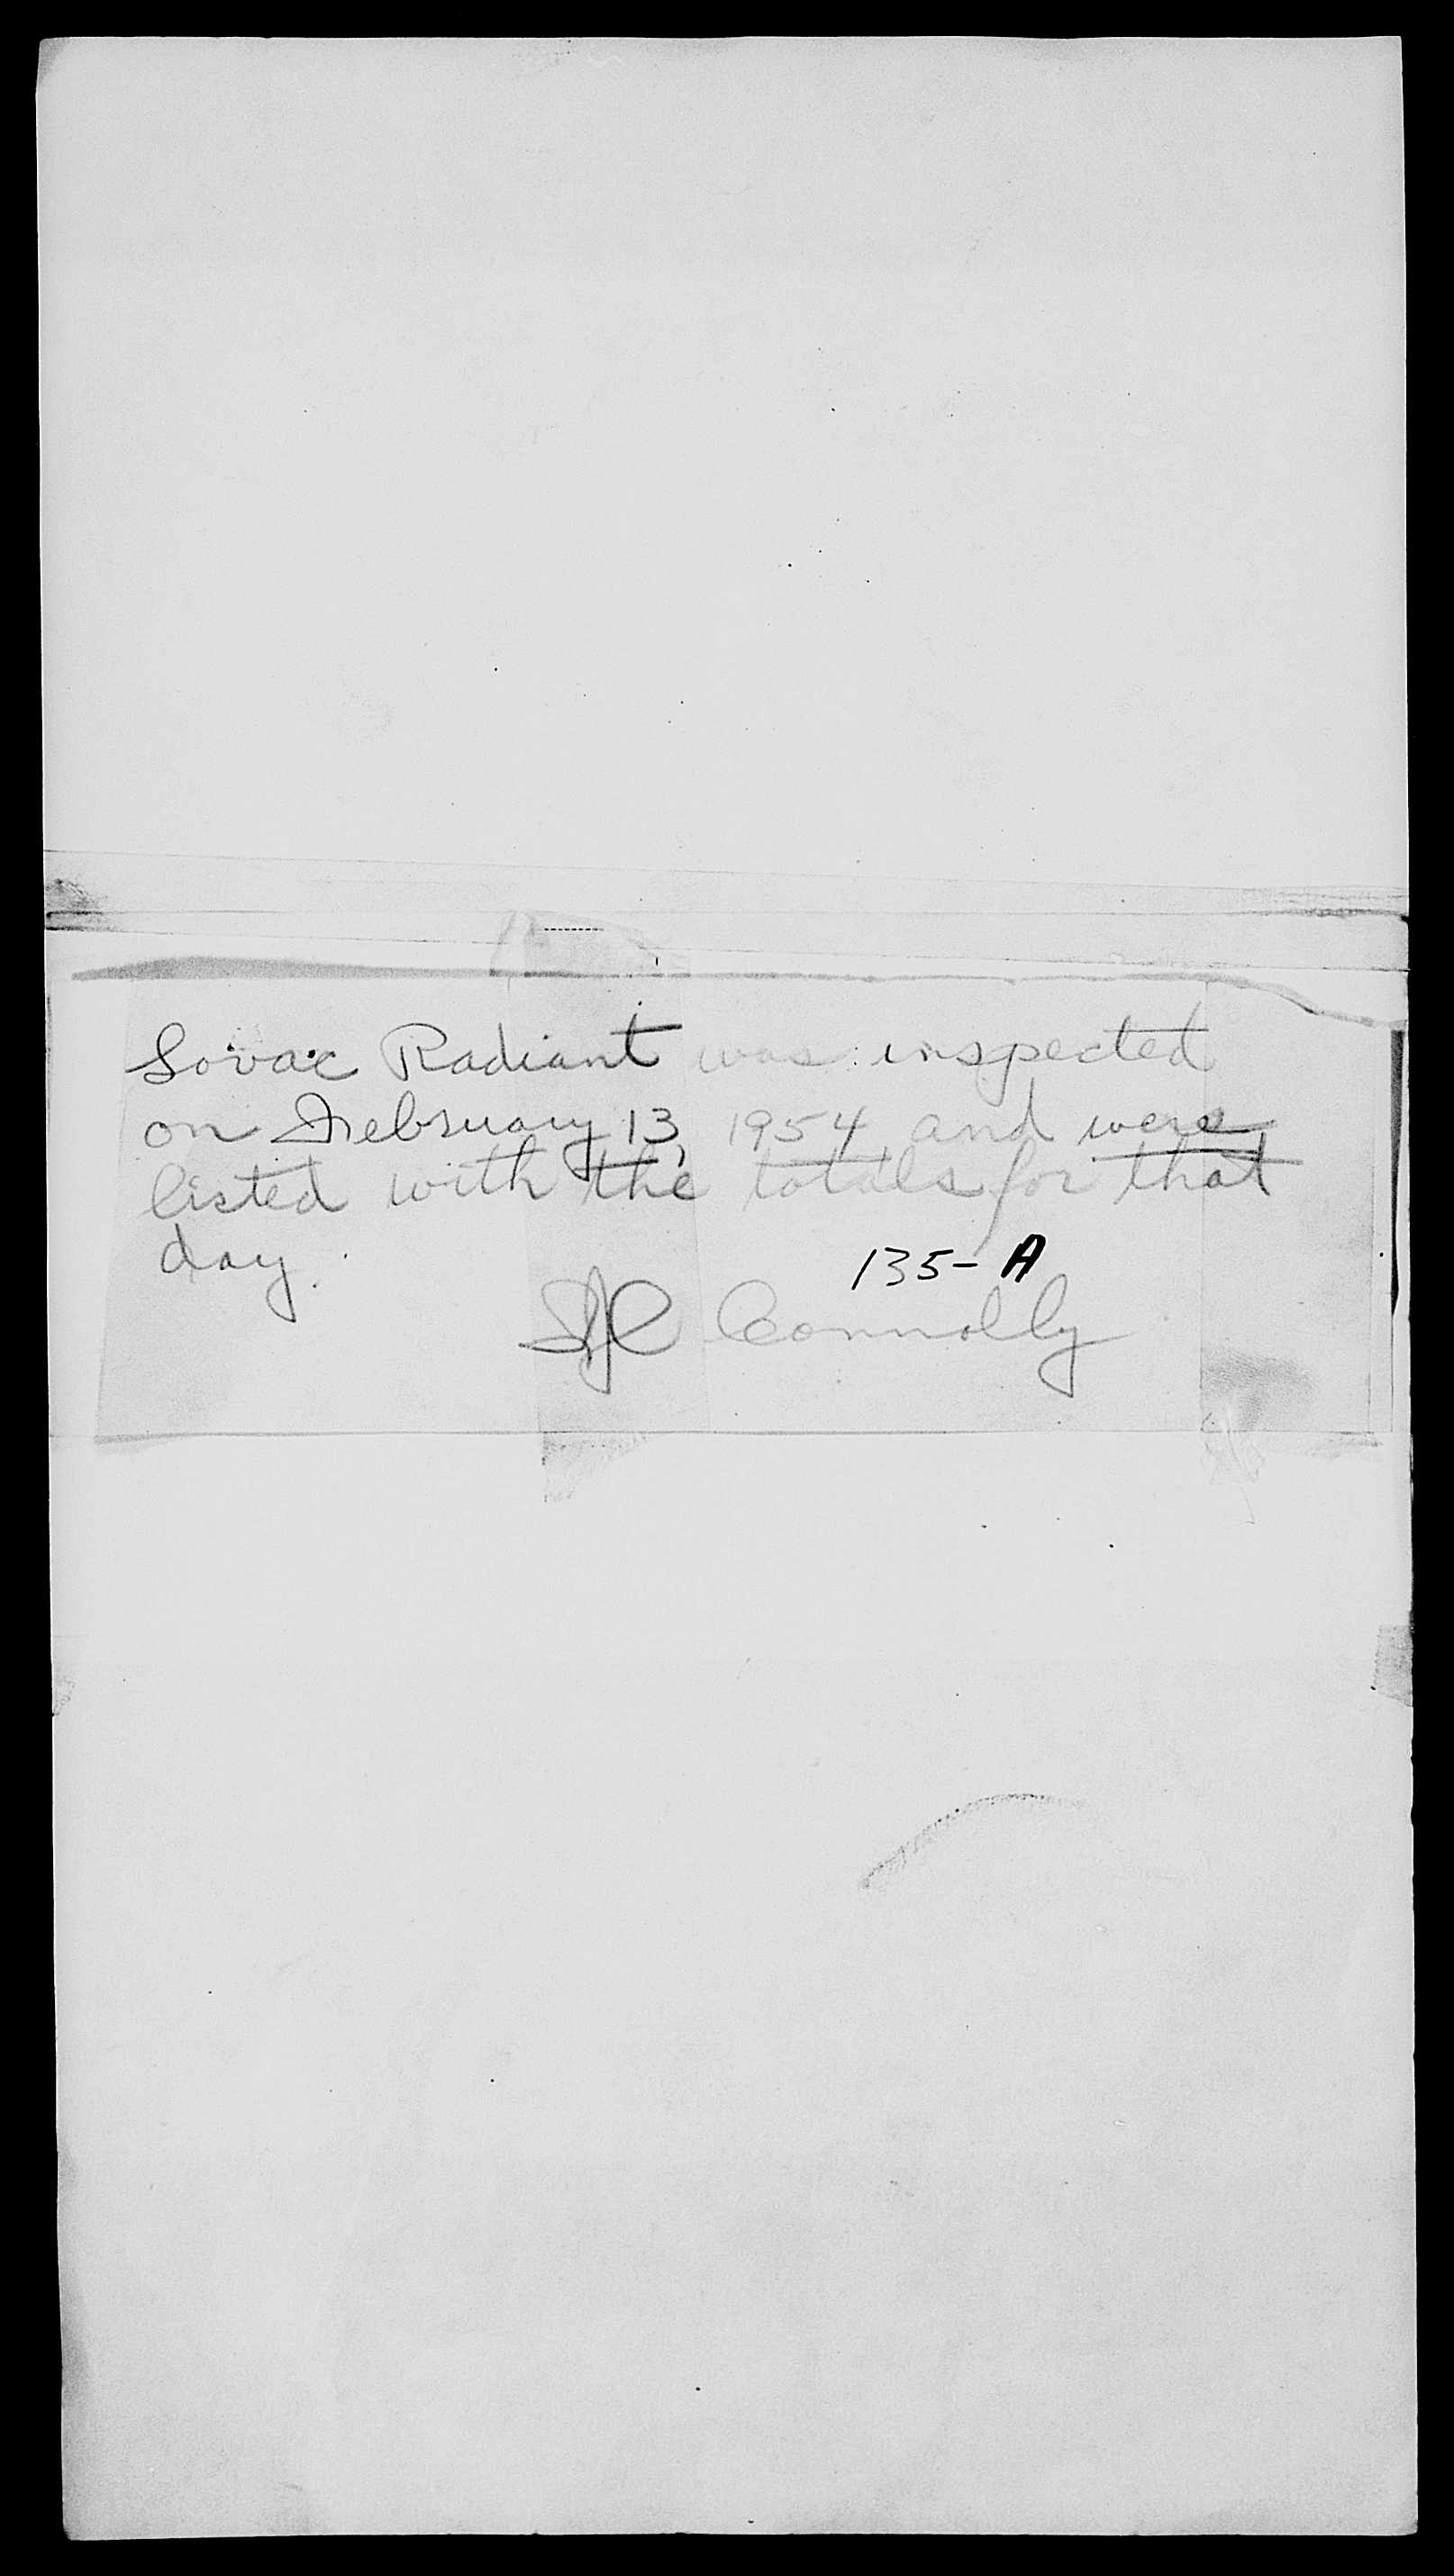 Sovac Radiant was inspected
on February 13, 1954 and were
listed with the totals for that
day.
135-A
Connolly